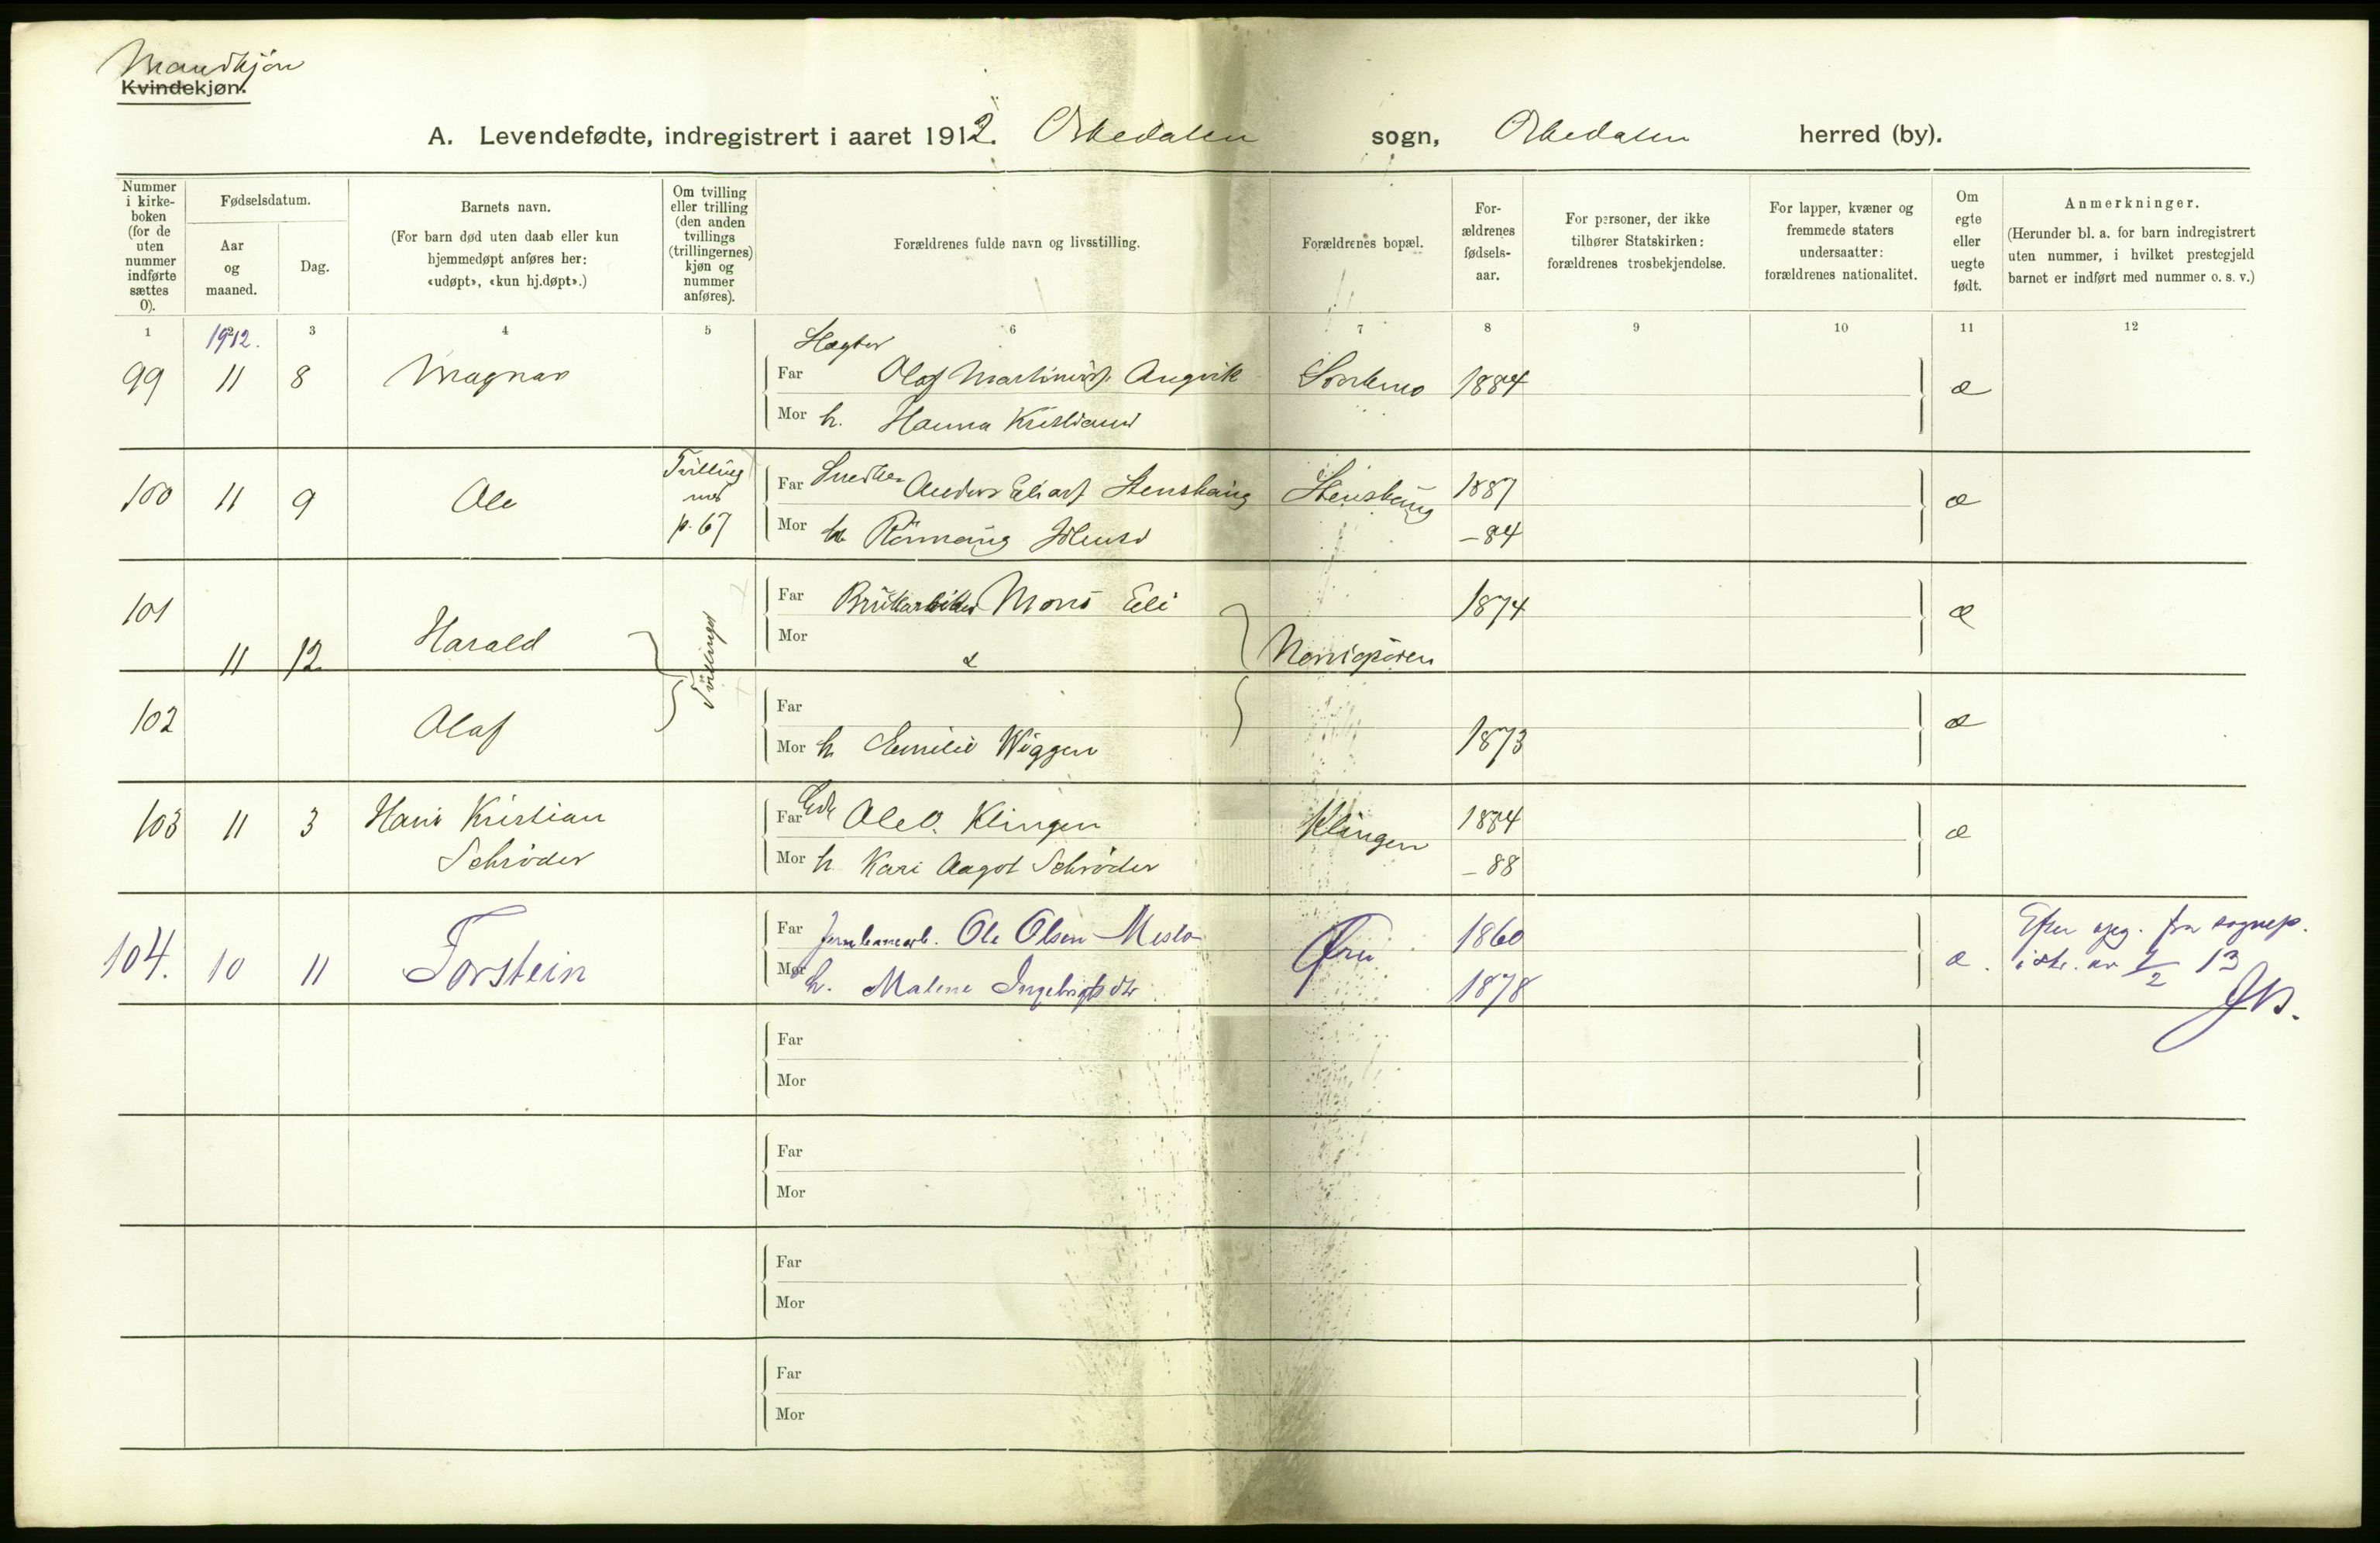 Mandkjøn
Kvindekjøn.
A. Levendefødte, indregistrert i aaret 1912. Orkedalen sogn, Orkedalen herred (by).
Nummer i kirke- boken (for de uten nummer indførte sættes 0).
Fødselsdatum.
Aar og maaned.
Dag.
Barnets navn.
(For barn død uten daab eller kun hjemmedøpt anføres her: «udøpt», «kun hj.døpt».)
Om tvilling eller trilling (den anden tvillings (trillingernes) kjøn og nummer anføres).
Forældrenes fulde navn og livsstilling.
Forældrenes bopæl.
For- ældrenes fødsels- aar.
For personer, der ikke tilhører Statskirken: forældrenes trosbekjendelse.
For lapper, kvæner og fremmede staters undersaatter: forældrenes nationalitet.
Om egte eller uegte født.
Anmerkninger.
(Herunder bl. a. for barn indregistrert uten nummer, i hvilket prestegjeld barnet er indført med nummer o. s. v.)
1 2 3 4 5 6 7 8 9 10 11 12
1912.
99 11 8 Magnar
Far Olaf Angvik 1884 æ
Mor h. Hanna
100 11 9 Ole Tvilling med p. 67
Far Snedker Anders Stenshaug Stenshaug 1887 æ
Mor h. -84
101 11 12 Harald Tvillinger
Far Mons Eli 1874 æ
Mor
&
102 Olaf
Far
Mor h Emilie Wiggen 1873 æ
103 11 3 Hans Kristian Schrøder
Far Ole O. Klingen Klingen 1884 æ
Mor h. Kari Aagot Schrøder -88
104. 10 11 Torstein
Far Jernbanearb. Ole Olsen Meslo 1860 æ.
Mor h. Malene Ingebrigtsdtr 1878
Efter opg. fra sognep.
i skr. av 1/2 13
Far
Mor
Far
Mor
Far
Mor
Far
Mor